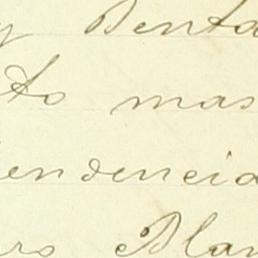 y Benta
to mas
endencia
ro Blan